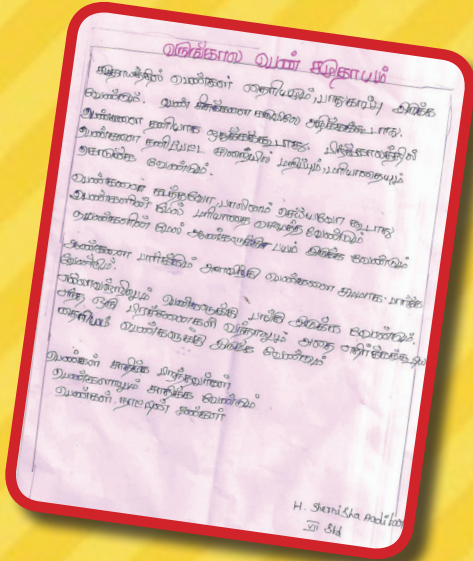 வருங்கால பெண் சமுதாயம்
சமுதாயத்தில் பெண்கள் தைரியமும், பாதுகாப்பு இருக்க
வேண்டும். பெண் சிசுக்களை கருவிலே அழிக்கக்கூடாது.
பெண்களை தனியாக ஒதுக்கக்கூடாது பிற்காலத்தில்
பெண்களை தனிப்பட்ட முறையில் மதிப்பும், மரியாதையும்
கொடுக்க வேண்டும்.
பெண்களை கடத்தவோ, பாலினம் செய்யவோ கூடாது
பெண்களின் மேல் மரியாதை வேண்டும்
பெண்களின் மேல் ஆண்களுக்கு பயம் இருக்க வேண்டும்
ஆண்களை பார்க்கும் அளவிற்கு பெண்களை சமமாக பார்க்க
வேண்டும்.
எல்லாவற்றிலும் பெண்களுக்கு பங்கு இருக்க வேண்டும்.
எந்த ஒரு பிரச்சனைகள் வந்தாலும் அதை எதிர்க்கக்கூடிய
தைரியம் பெண்களுக்கு இருக்க வேண்டும்
பெண்கள் சாதிக்க பிறந்தவர்கள்
பெண்களாலும் சாதிக்க வேண்டும்
பெண்கள் நாட்டின் கண்கள்
H.
VII Std